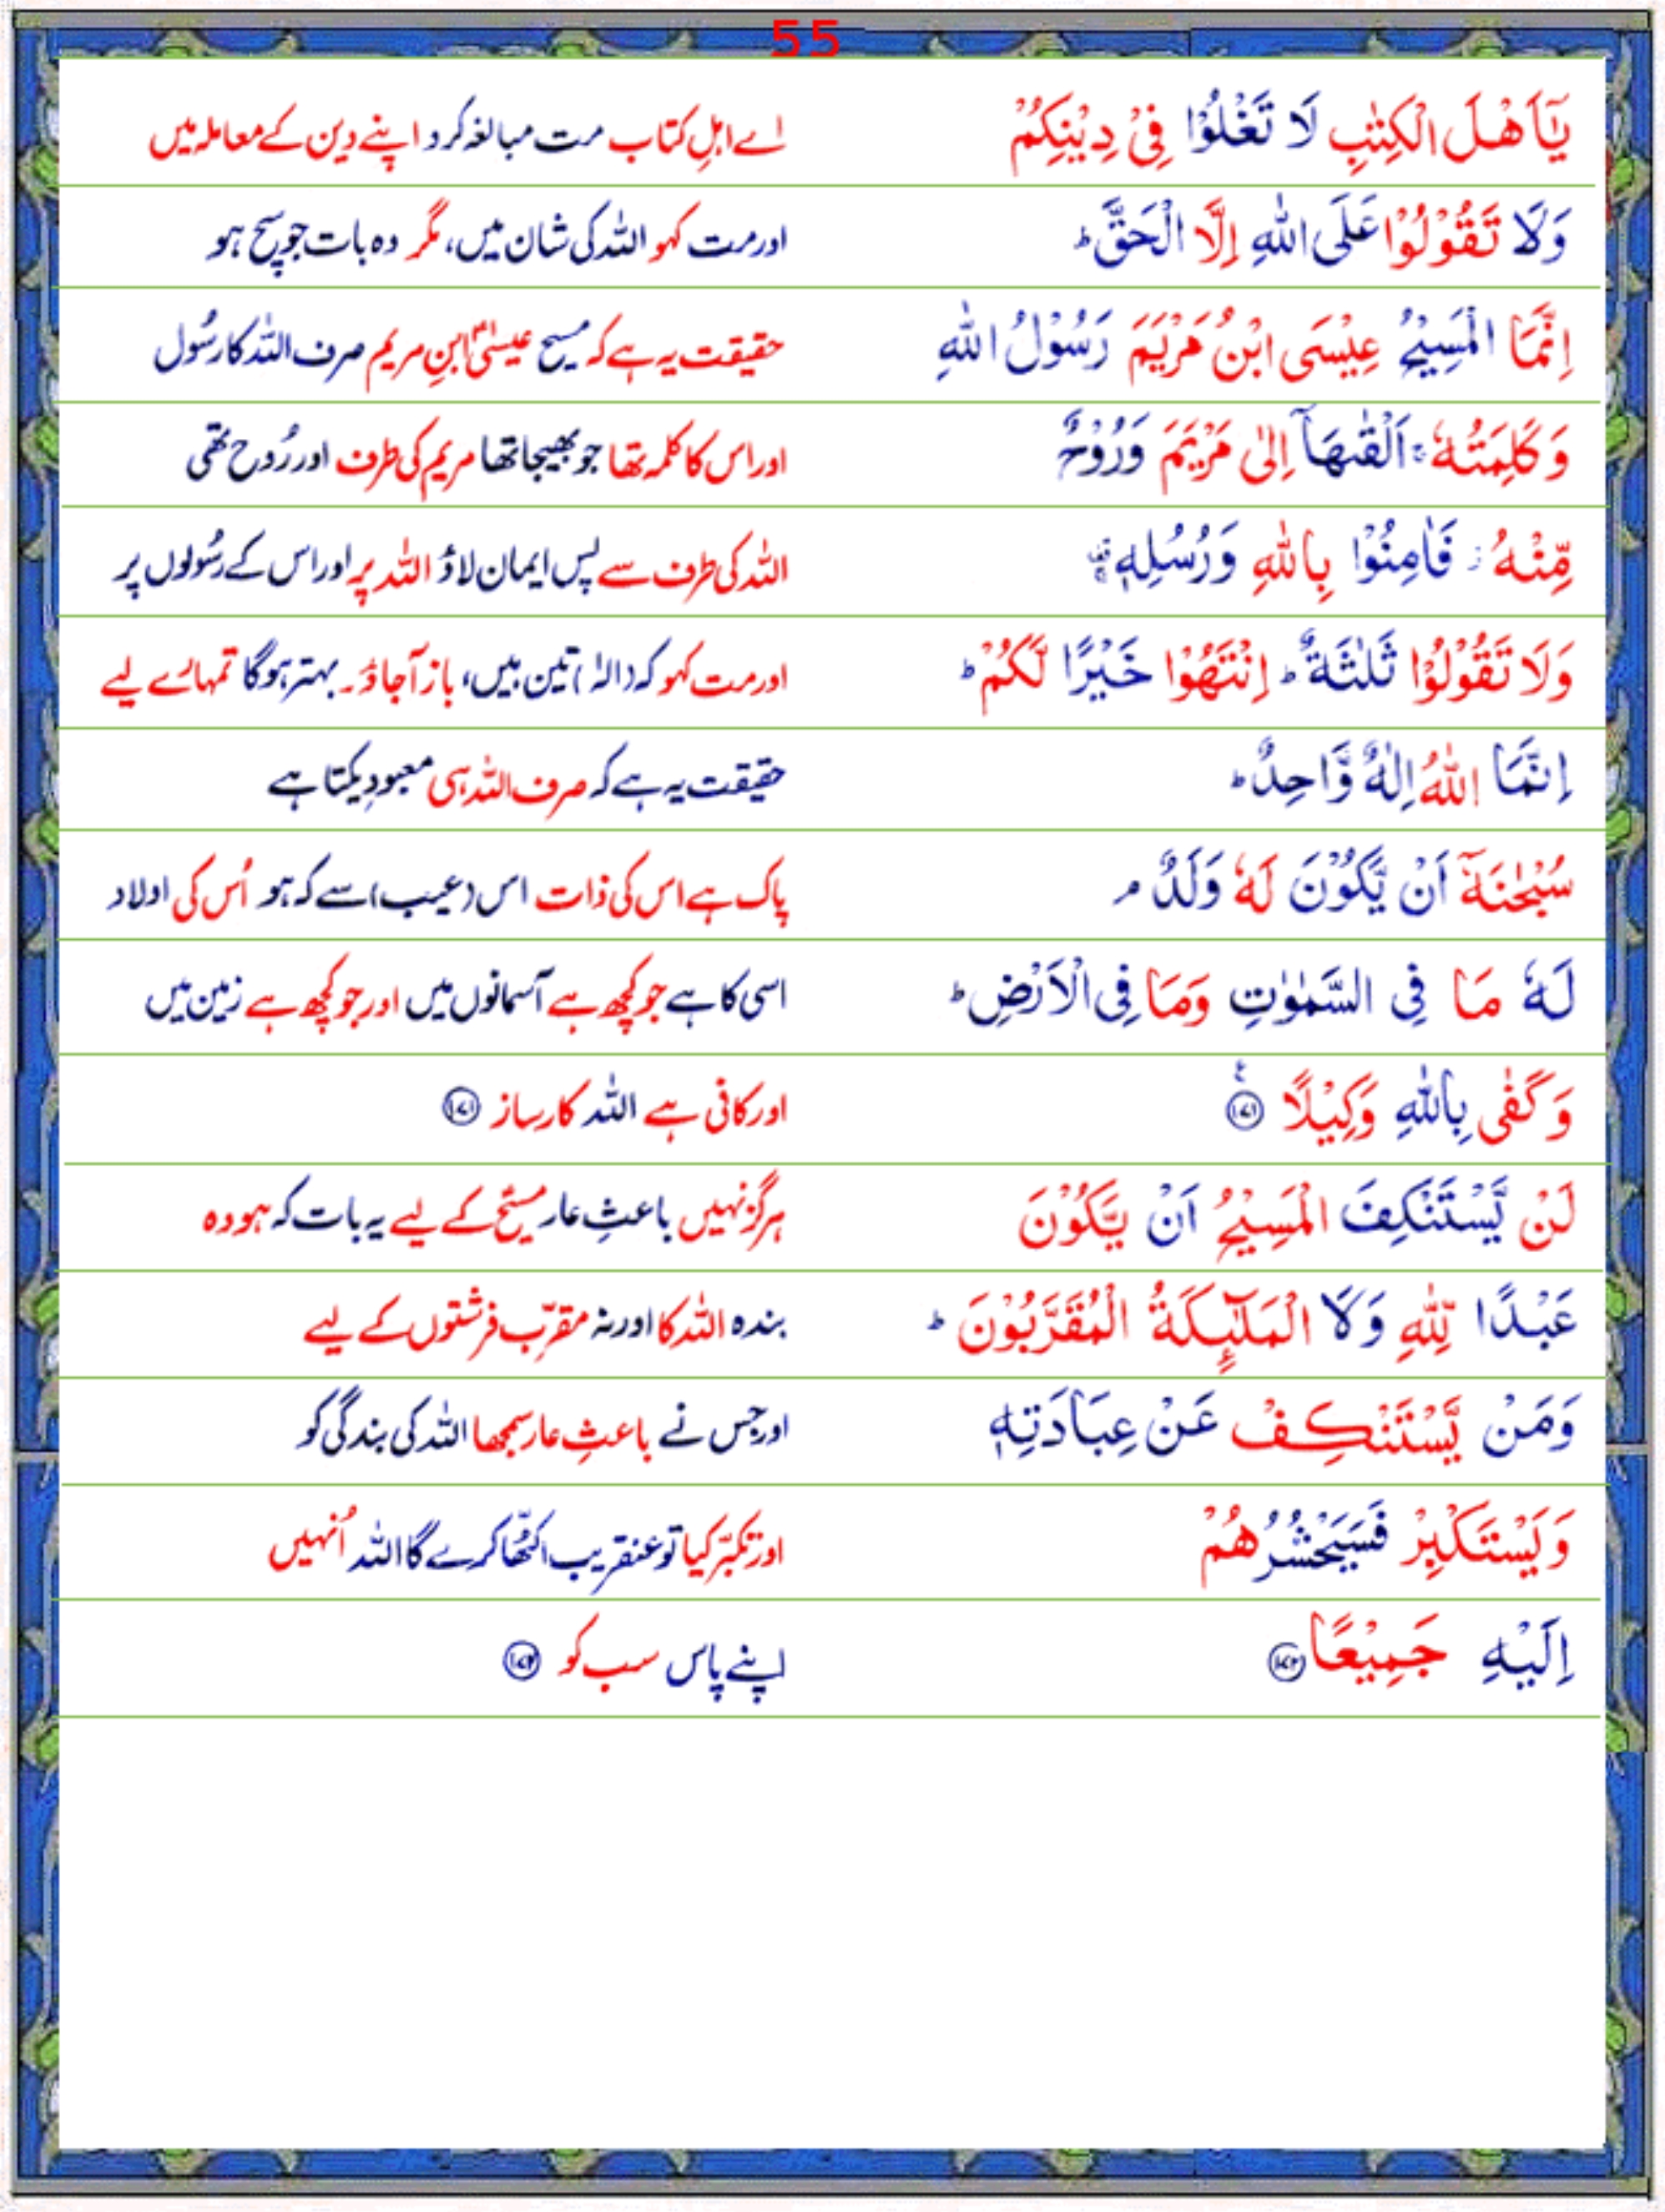 55
يٰۤاَهْلَ الْكِتٰبِ لَا تَغْلُوْا فِيْ دِيْنِكُمْ اے اہلِ کتاب مت مبالغہ کرو اپنے دین کے معاملہ میں
وَلَا تَقُوْلُوْا عَلَى اللّٰهِ اِلَّا الْحَقَّ ؕ اور مت کہو اللہ کی شان میں، مگر وہ بات جو سچ ہو
اِنَّمَا الْمَسِيْحُ عِيْسَى ابْنُ مَرْيَمَ رَسُوْلُ اللّٰهِ حقیقت یہ ہے کہ مسیح عیسیٰؑ ابنِ مریم صرف اللہ کا رسُول
وَكَلِمَتُهٗ ۚ اَلْقٰىهَاۤ اِلٰى مَرْيَمَ وَرُوْحٌ اور اس کا کلمہ تھا جو بھیجا تھا مریم کی طرف اور رُوح تھی
مِّنْهُ ؗ فَاٰمِنُوْا بِاللّٰهِ وَرُسُلِهٖ ۫ۚ اللہ کی طرف سے پس ایمان لاؤ اللہ پر اور اس کے رسُولوں پر
وَلَا تَقُوْلُوْا ثَلٰثَةٌ ؕ اِنْتَهُوْا خَيْرًا لَّكُمْ ؕ اور مت کہو کہ (الٰہ) تین ہیں، باز آجاؤ۔ بہتر ہوگا تمہارے لیے
اِنَّمَا اللّٰهُ اِلٰهٌ وَّاحِدٌ ؕ حقیقت یہ ہے کہ صرف اللہ ہی معبودِ یکتا ہے
سُبْحٰنَهٗۤ اَنْ يَّكُوْنَ لَهٗ وَلَدٌ ۘ پاک ہے اس کی ذات اس (عیب) سے کہ ہو اُس کی اولاد
لَهٗ مَا فِى السَّمٰوٰتِ وَمَا فِى الْاَرْضِ ؕ اسی کا ہے جو کچھ ہے آسمانوں میں اور جو کچھ ہے زمین میں
وَكَفٰى بِاللّٰهِ وَكِيْلًا ۱۷۱ ع اور کافی ہے اللہ کارساز ۱۷۱
لَنْ يَّسْتَنْكِفَ الْمَسِيْحُ اَنْ يَّكُوْنَ ہرگز نہیں باعثِ عار مسیحؑ کے لیے یہ بات کہ ہو وہ
عَبْدًا لِّلّٰهِ وَلَا الْمَلٰٓئِكَةُ الْمُقَرَّبُوْنَ ؕ بندہ اللہ کا اور نہ مقرّب فرشتوں کے لیے
وَمَنْ يَّسْتَنْكِفْ عَنْ عِبَادَتِهٖ اور جس نے باعثِ عار سمجھا اللہ کی بندگی کو
وَيَسْتَكْبِرْ فَسَيَحْشُرُهُمْ اور تکبّر کیا تو عنقریب اکٹھّا کرے گا اللہ اُنہیں
اِلَيْهِ جَمِيْعًا ۱۷۲ اپنے پاس سب کو ۱۷۲